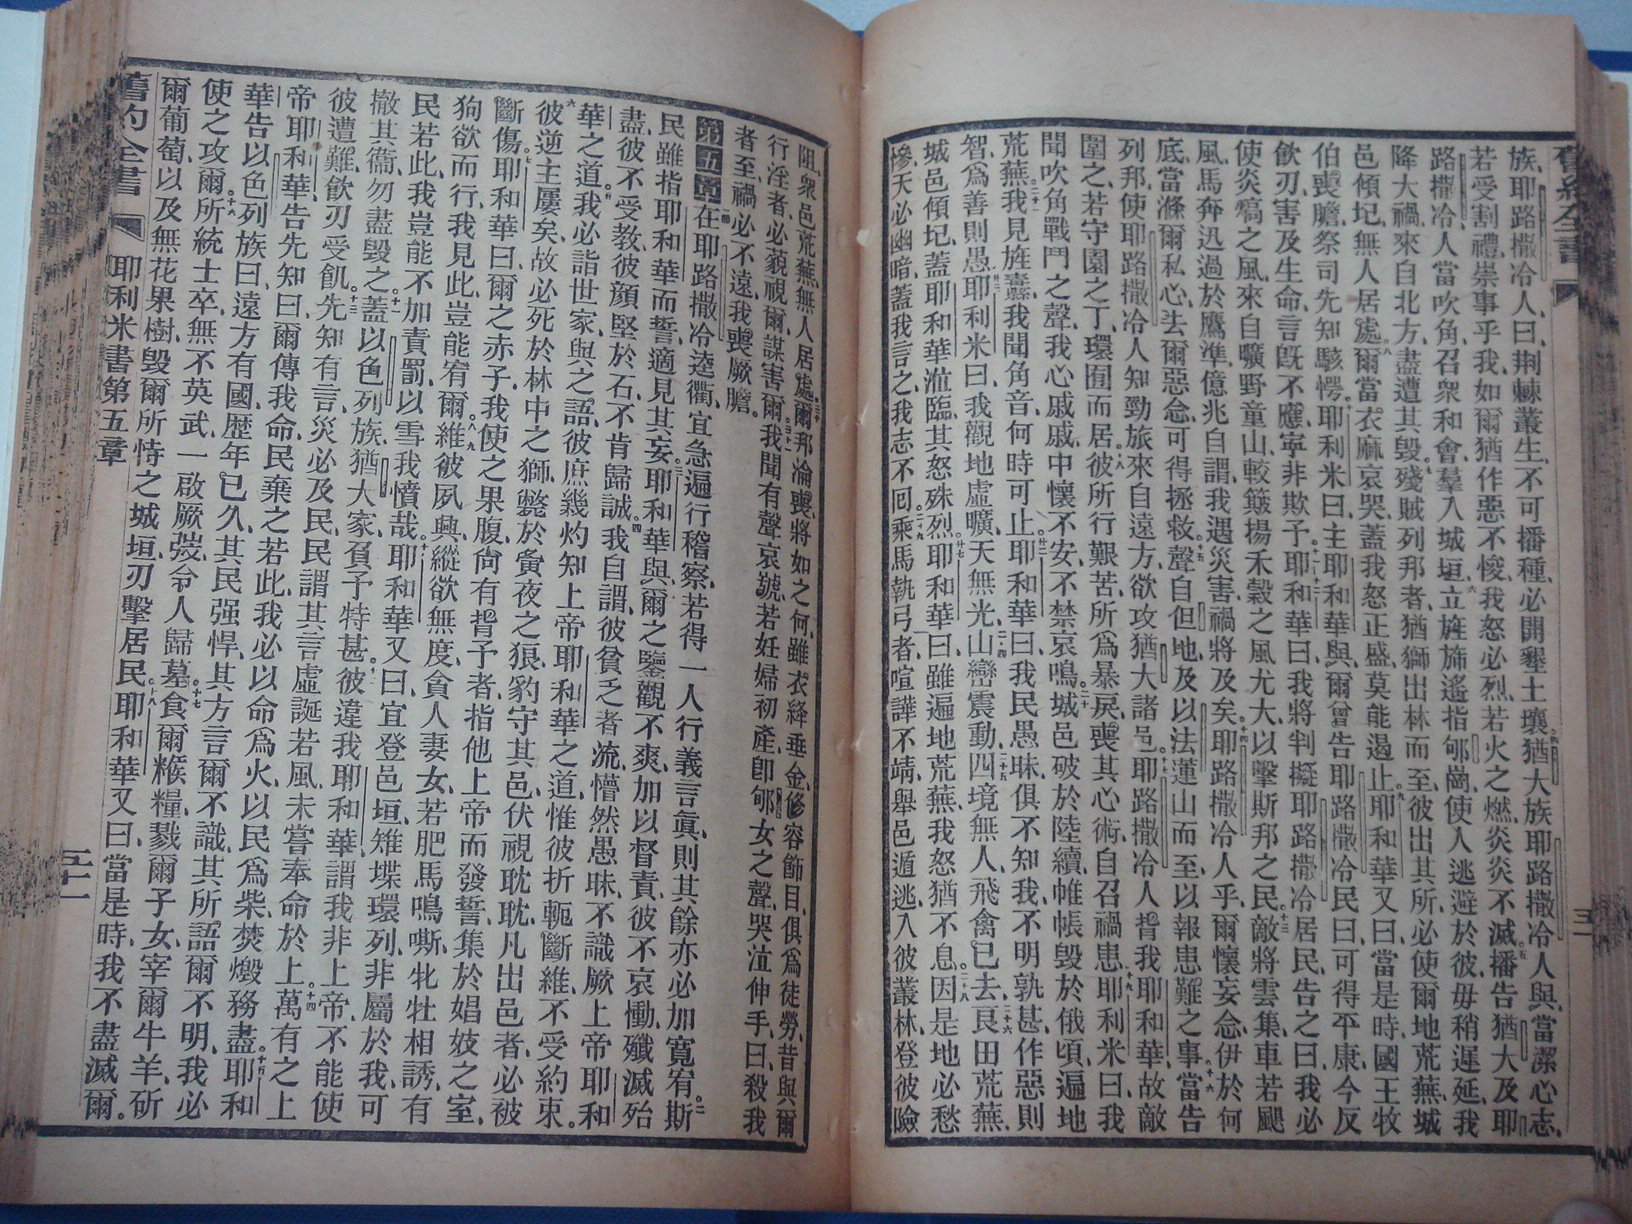 舊約全書
族、耶路撒冷人、曰、荊棘叢生、不可播種、必開墾土壤、猶大族、耶路撒冷人與、當潔心志、
若受割禮、崇事乎我、如爾猶作惡不悛、我怒必烈、若火之燃、炎炎不滅、播告猶大、及耶
路撒冷人、當吹角、召衆和會、羣入城垣、立旌旆、遙指郇崗、使人逃避於彼、毋稍遲延、我
降大禍、來自北方、盡遭其毀、殘賊列邦者、猶獅出林而至、彼出其所、必使爾地荒蕪、城
邑傾圮、無人居處、爾當衣麻哀哭、蓋我怒正盛、莫能遏止、耶和華又曰、當是時、國王牧
伯喪膽、祭司先知駭愕、耶利米曰、主耶和華與、爾曾告耶路撒冷民曰、可得平康、今反
飲刃、害及生命、言旣不應、寧非欺予、耶和華曰、我將判擬耶路撒冷居民、告之曰、我必
使炎熇之風、來自曠野童山、較簸揚禾穀之風尤大、以擊斯邦之民、敵將雲集、車若颶
風、馬奔迅過於鷹準、億兆自謂、我遇災害、禍將及矣、耶路撒冷人乎、爾懷妄念、伊於何
底、當滌爾私心、去爾惡念、可得拯救、聲自但地、及以法蓮山而至、以報患難之事、當告
列邦、使耶路撒冷人知、勁旅來自遠方、欲攻猶大諸邑、耶路撒冷人㫮我、耶和華、故敵
圍之、若守園之丁、環囿而居、彼所行艱苦、所爲暴戾、喪其心術、自召禍患、耶利米曰、我
聞吹角戰鬥之聲、我心戚戚、中懷不安、不禁哀鳴、城邑破於陸續、帷帳毀於俄頃、遍地
荒蕪、我見旌纛、我聞角音、何時可止、耶和華曰、我民愚昧、俱不知我、不明孰甚、作惡則
智、爲善則愚、耶利米曰、我觀地虛曠、天無光、山巒震動、四境無人、飛禽已去、良田荒蕪、
城邑傾圮、蓋耶和華涖臨、其怒殊烈、耶和華曰、雖遍地荒蕪、我怒猶不息、因是地必愁
慘、天必幽暗、蓋我言之、我志不囘、乘馬執弓者、喧譁不靖、舉邑遁逃、入彼叢林、登彼險
阻、衆邑荒蕪、無人居處、爾邦淪喪、將如之何、雖衣絳垂金、修容飾目、俱爲徒勞、昔與爾
行淫者、必藐視爾、謀害爾、我聞有聲哀號、若妊婦初產、卽郇女之聲、哭泣伸手、曰、殺我
者至、禍必不遠、我喪厥膽、
第五章 在耶路撒冷逵衢、宜急遍行稽察、若得一人行義言眞、則其餘亦必加寬宥、斯
民雖指耶和華而誓、適見其妄、耶和華與、爾之鑒觀不爽、加以督責、彼不哀慟、殲滅殆
盡、彼不受教、彼顏堅於石、不肯歸誠、我自謂、彼貧乏者流、懵然愚昧、不識厥上帝耶和
華之道、我必詣世家、與之語、彼庶幾灼知上帝耶和華之道、惟彼折軛斷維、不受約束、
彼逆主屢矣、故必死於林中之獅、斃於夤夜之狼、豹守其邑、伏視耽耽、凡出邑者、必被
斷傷、耶和華曰、爾之赤子、我使之果腹、尙有㫮予者、指他上帝而發誓、集於娼妓之室、
狗欲而行、我見此、豈能宥爾、維彼夙興、縱欲無度、貪人妻女、若肥馬鳴嘶、牝牡相誘、有
民若此、我豈能不加責罰、以雪我憤哉、耶和華又曰、宜登邑垣、雉堞環列、非屬於我、可
撤其衞、勿盡毀之、蓋以色列族、猶大家、負予特甚、彼違我耶和華、謂我非上帝、不能使
彼遭難、飲刃受飢、先知有言、災必及民、民謂其言虛誕若風、未嘗奉命於上、萬有之上
帝耶和華、告先知曰、爾傳我命、民棄之若此、我必以命爲火、以民爲柴、焚燬務盡、耶和
華告以色列族曰、遠方有國、歷年已久、其民强悍、其方言爾不識、其所語爾不明、我必
使之攻爾、所統士卒、無不英武、一啟厥弢、令人歸墓、食爾餱糧、戮爾子女、宰爾牛羊、斫
爾葡萄、以及無花果樹、毀爾所恃之城垣、刃擊居民、耶和華又曰、當是時、我不盡滅爾、
舊約全書 耶利米書第五章 五十二